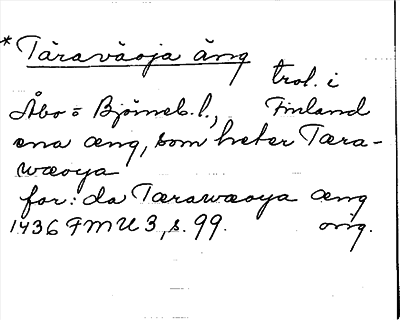 *Täraväoja äng
trol. i
Åbo = Björneb. l., Finland
ena æng, som heter Tæra-
wæoya
for: da Tærawæoya æng
1436 FMU 3, s. 99. orig.